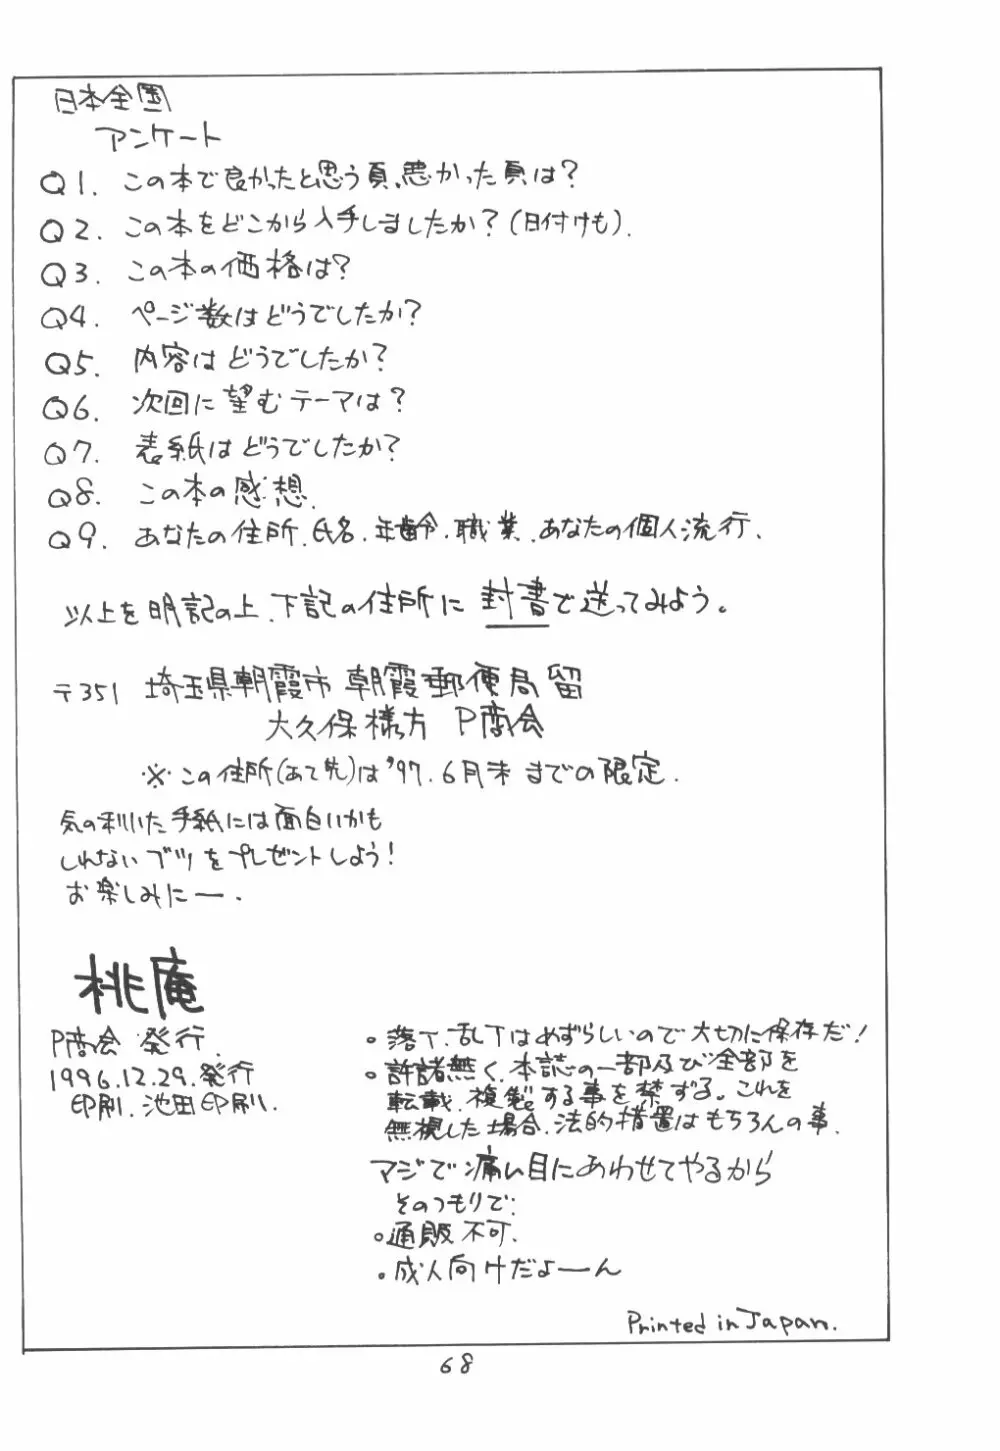 日本全国
アンケート
Q1. この本で良かったと思う頁、悪かった頁は？
Q2. この本をどこから入手しましたか？(日付けも).
Q3. この本の価格は？
Q4. ページ数はどうでしたか？
Q5. 内容はどうでしたか？
Q6. 次回に望むテーマは？
Q7. 表紙はどうでしたか？
Q8. この本の感想.
Q9. あなたの住所.氏名.年齢.職業.あなたの個人流行.
以上を明記の上、下記の住所に封書で送ってみよう。
〒351 埼玉県朝霞市朝霞郵便局留
大久保様方 P商会
※この住所(あて先)は'97.6月末までの限定.
気の利いた手紙には面白いかも
しれないブツをプレゼントしよう！
お楽しみにー.
桃庵
P商会 発行.
1996.12.29.発行
印刷.池田印刷.
○落丁.乱丁はめずらしいので大切に保存だ！
○許諾無く、本誌の一部及び全部を
転載.複製する事を禁ずる。これを
無視した場合.法的措置はもちろんの事.
マジで痛い目にあわせてやるから
そのつもりで:
○通販不可.
○成人向けだよーん
Printed in Japan.
68